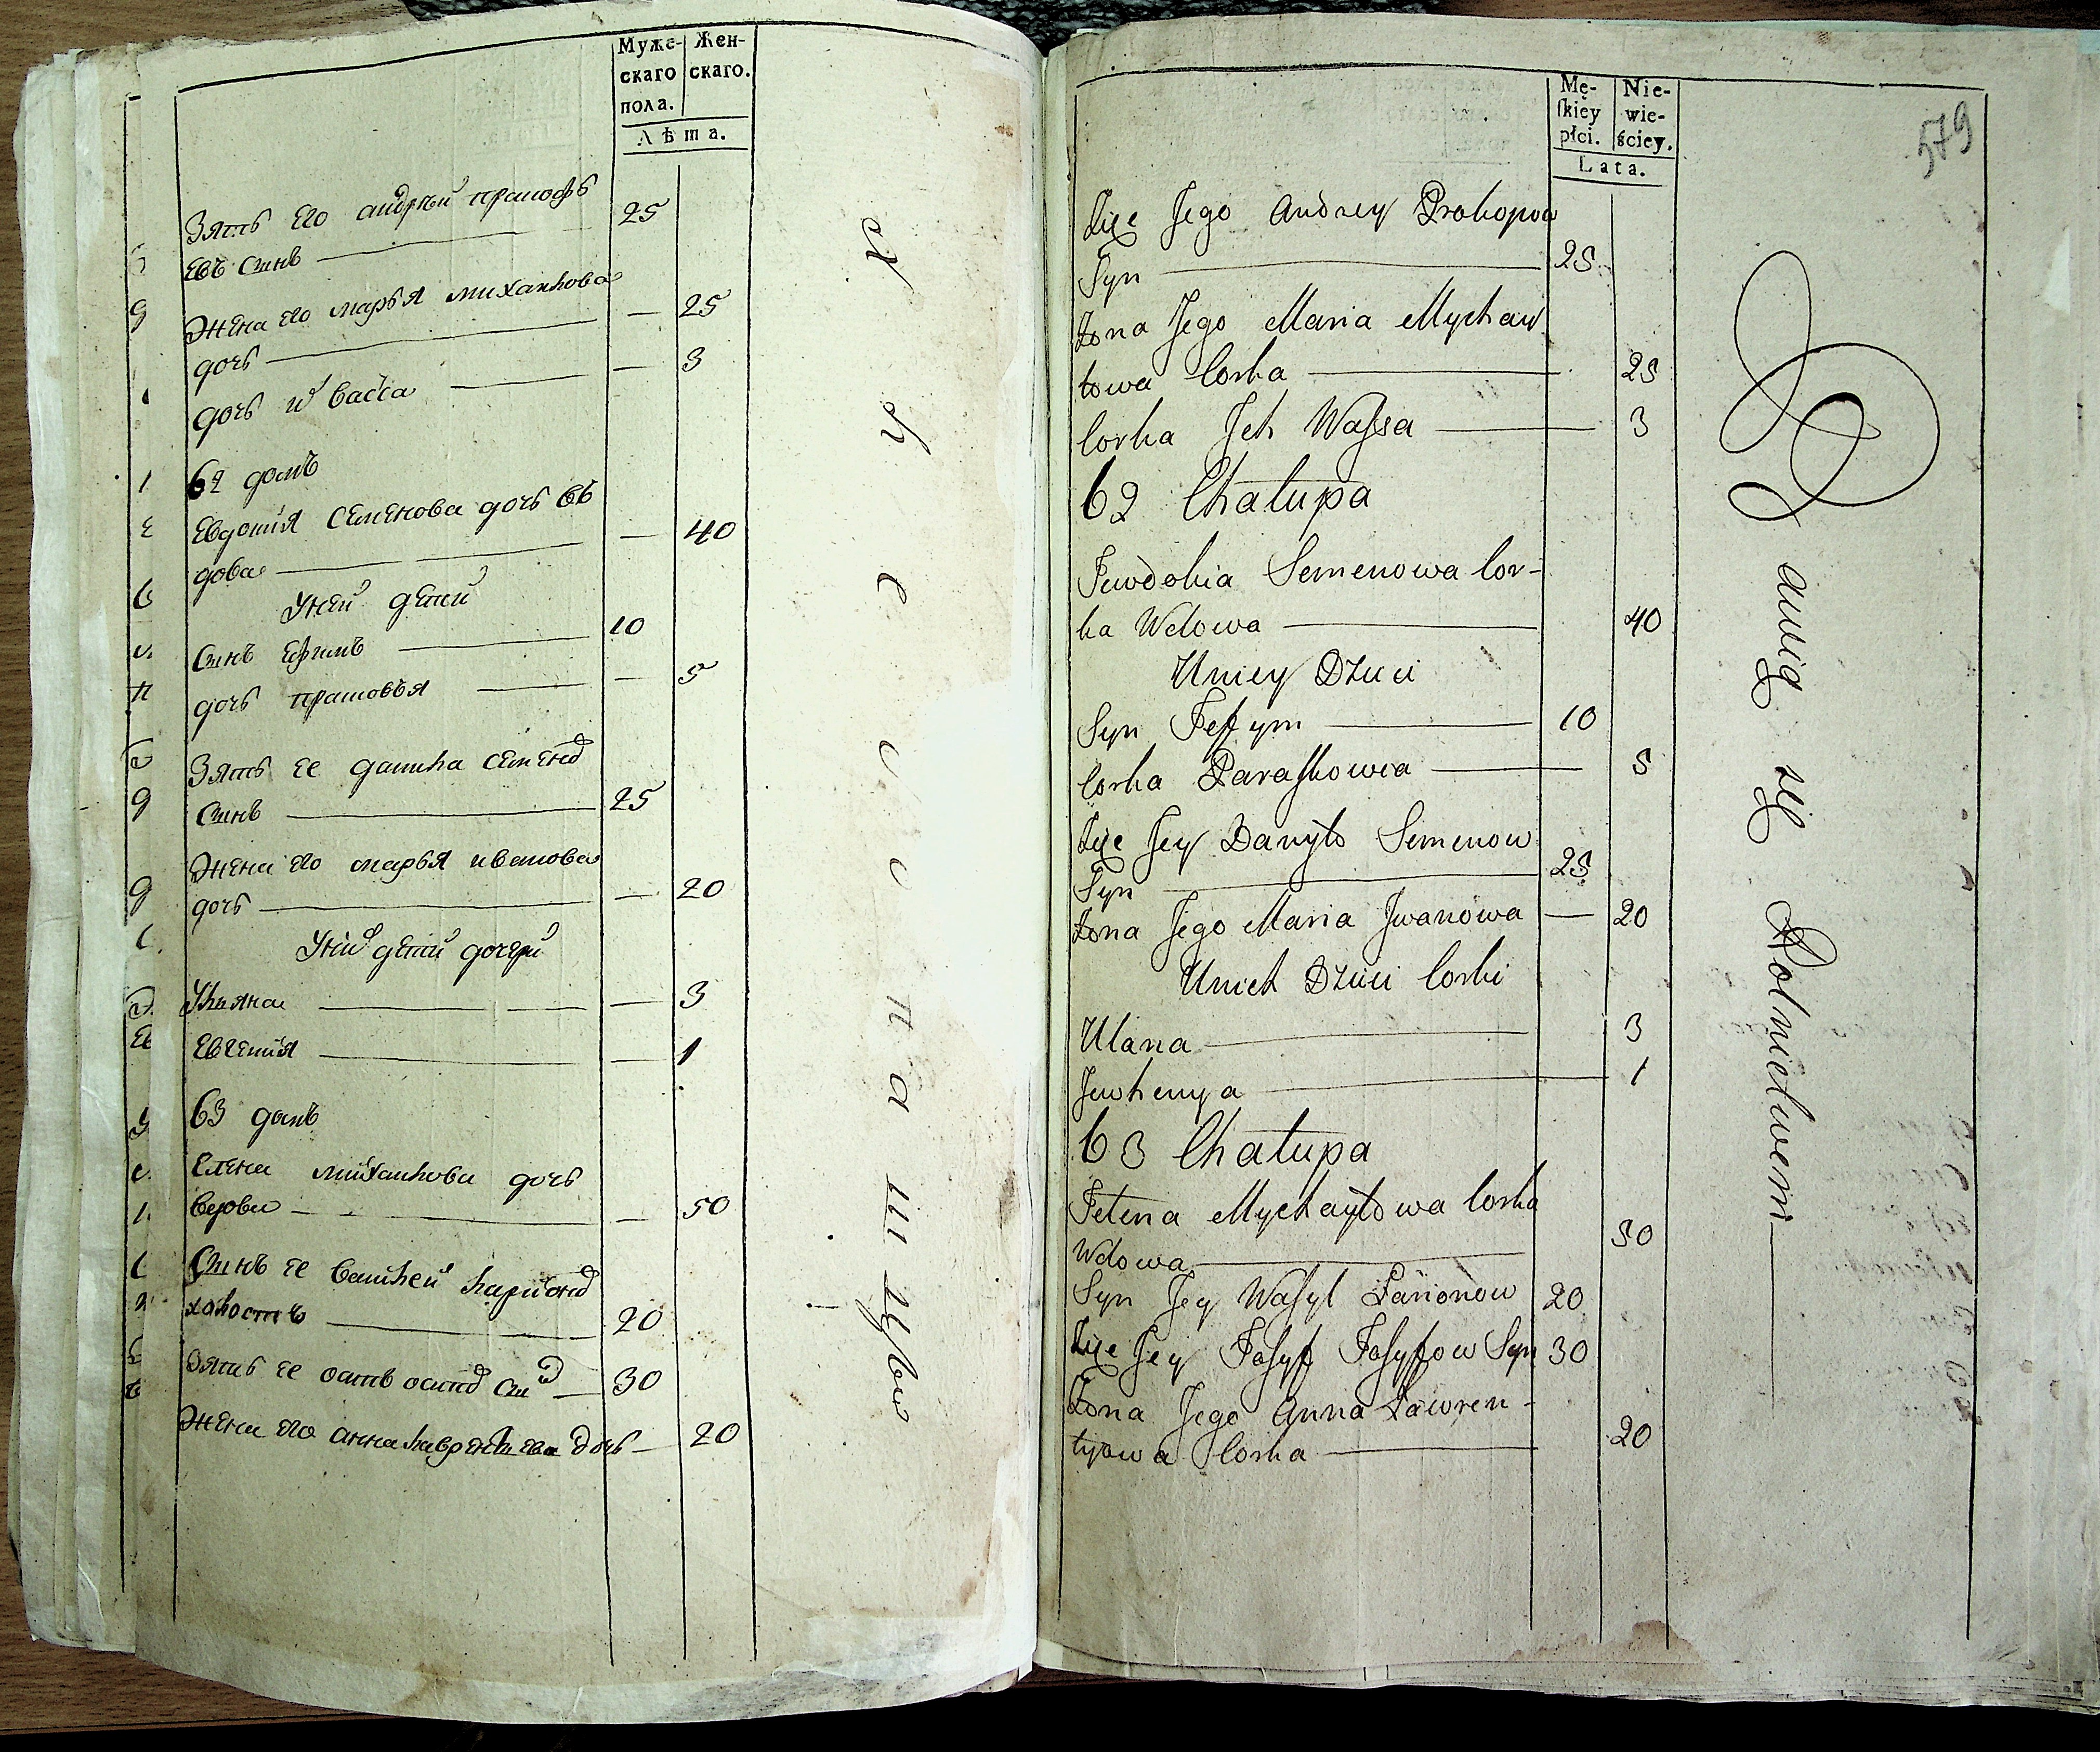 Муже-
скаго
пола.
Жен-
скаго.
Лѣта.
Зять его андрей прокофь
евъ синъ 25
Жена его марья михайлова
дочь — 25
дочь и҃ васса — 3
62 домъ
Евдокия Семенова дочь въ
дова — 40
У ней детей
Синъ Ефимъ 10
дочь прасковья — 5
Зять ее данила семенов
Синъ 25
Жена его марья иванова
дочь — 20
У них детей дочери
Ульяна — 3
Евгения — 1
63 домъ
Елена михайлова дочь
вдова — 50
Синъ ее василей ларионов
холостъ 20
Зять ее осипъ осипов си — 30
Жена его анна лаврентьева дочь — 20
Mę-
skiey
płci.
Nie-
wie-
ściey.
Lata.
579
Zięć Jego Andrey Prokopow
Syn 25
Żona Jego Maria Mychay
łowa Corka 25
Corka Ich Wassa 3
62 Chałupa
Jewdokia Semenowa Cor-
ka Wdowa 40
U niey Dzieci
Syn Jefym 10
Corka Paraskowia 5
Zięć Jey Danyło Semenow
Syn 25
Żona Jego Maria Jwanowa — 20
U nich Dzieci Corki
Ulana 3
Jewhenya 1
63 Chałupa
Jełena Mychayłowa Corka
Wdowa 50
Syn Jey Wasyl Łarionow 20
Zięć Jey Josyf Josyfow Syn 30
Żona Jego Anna Ławren-
tyowa Corka 20
Bawią się Rolnictwem